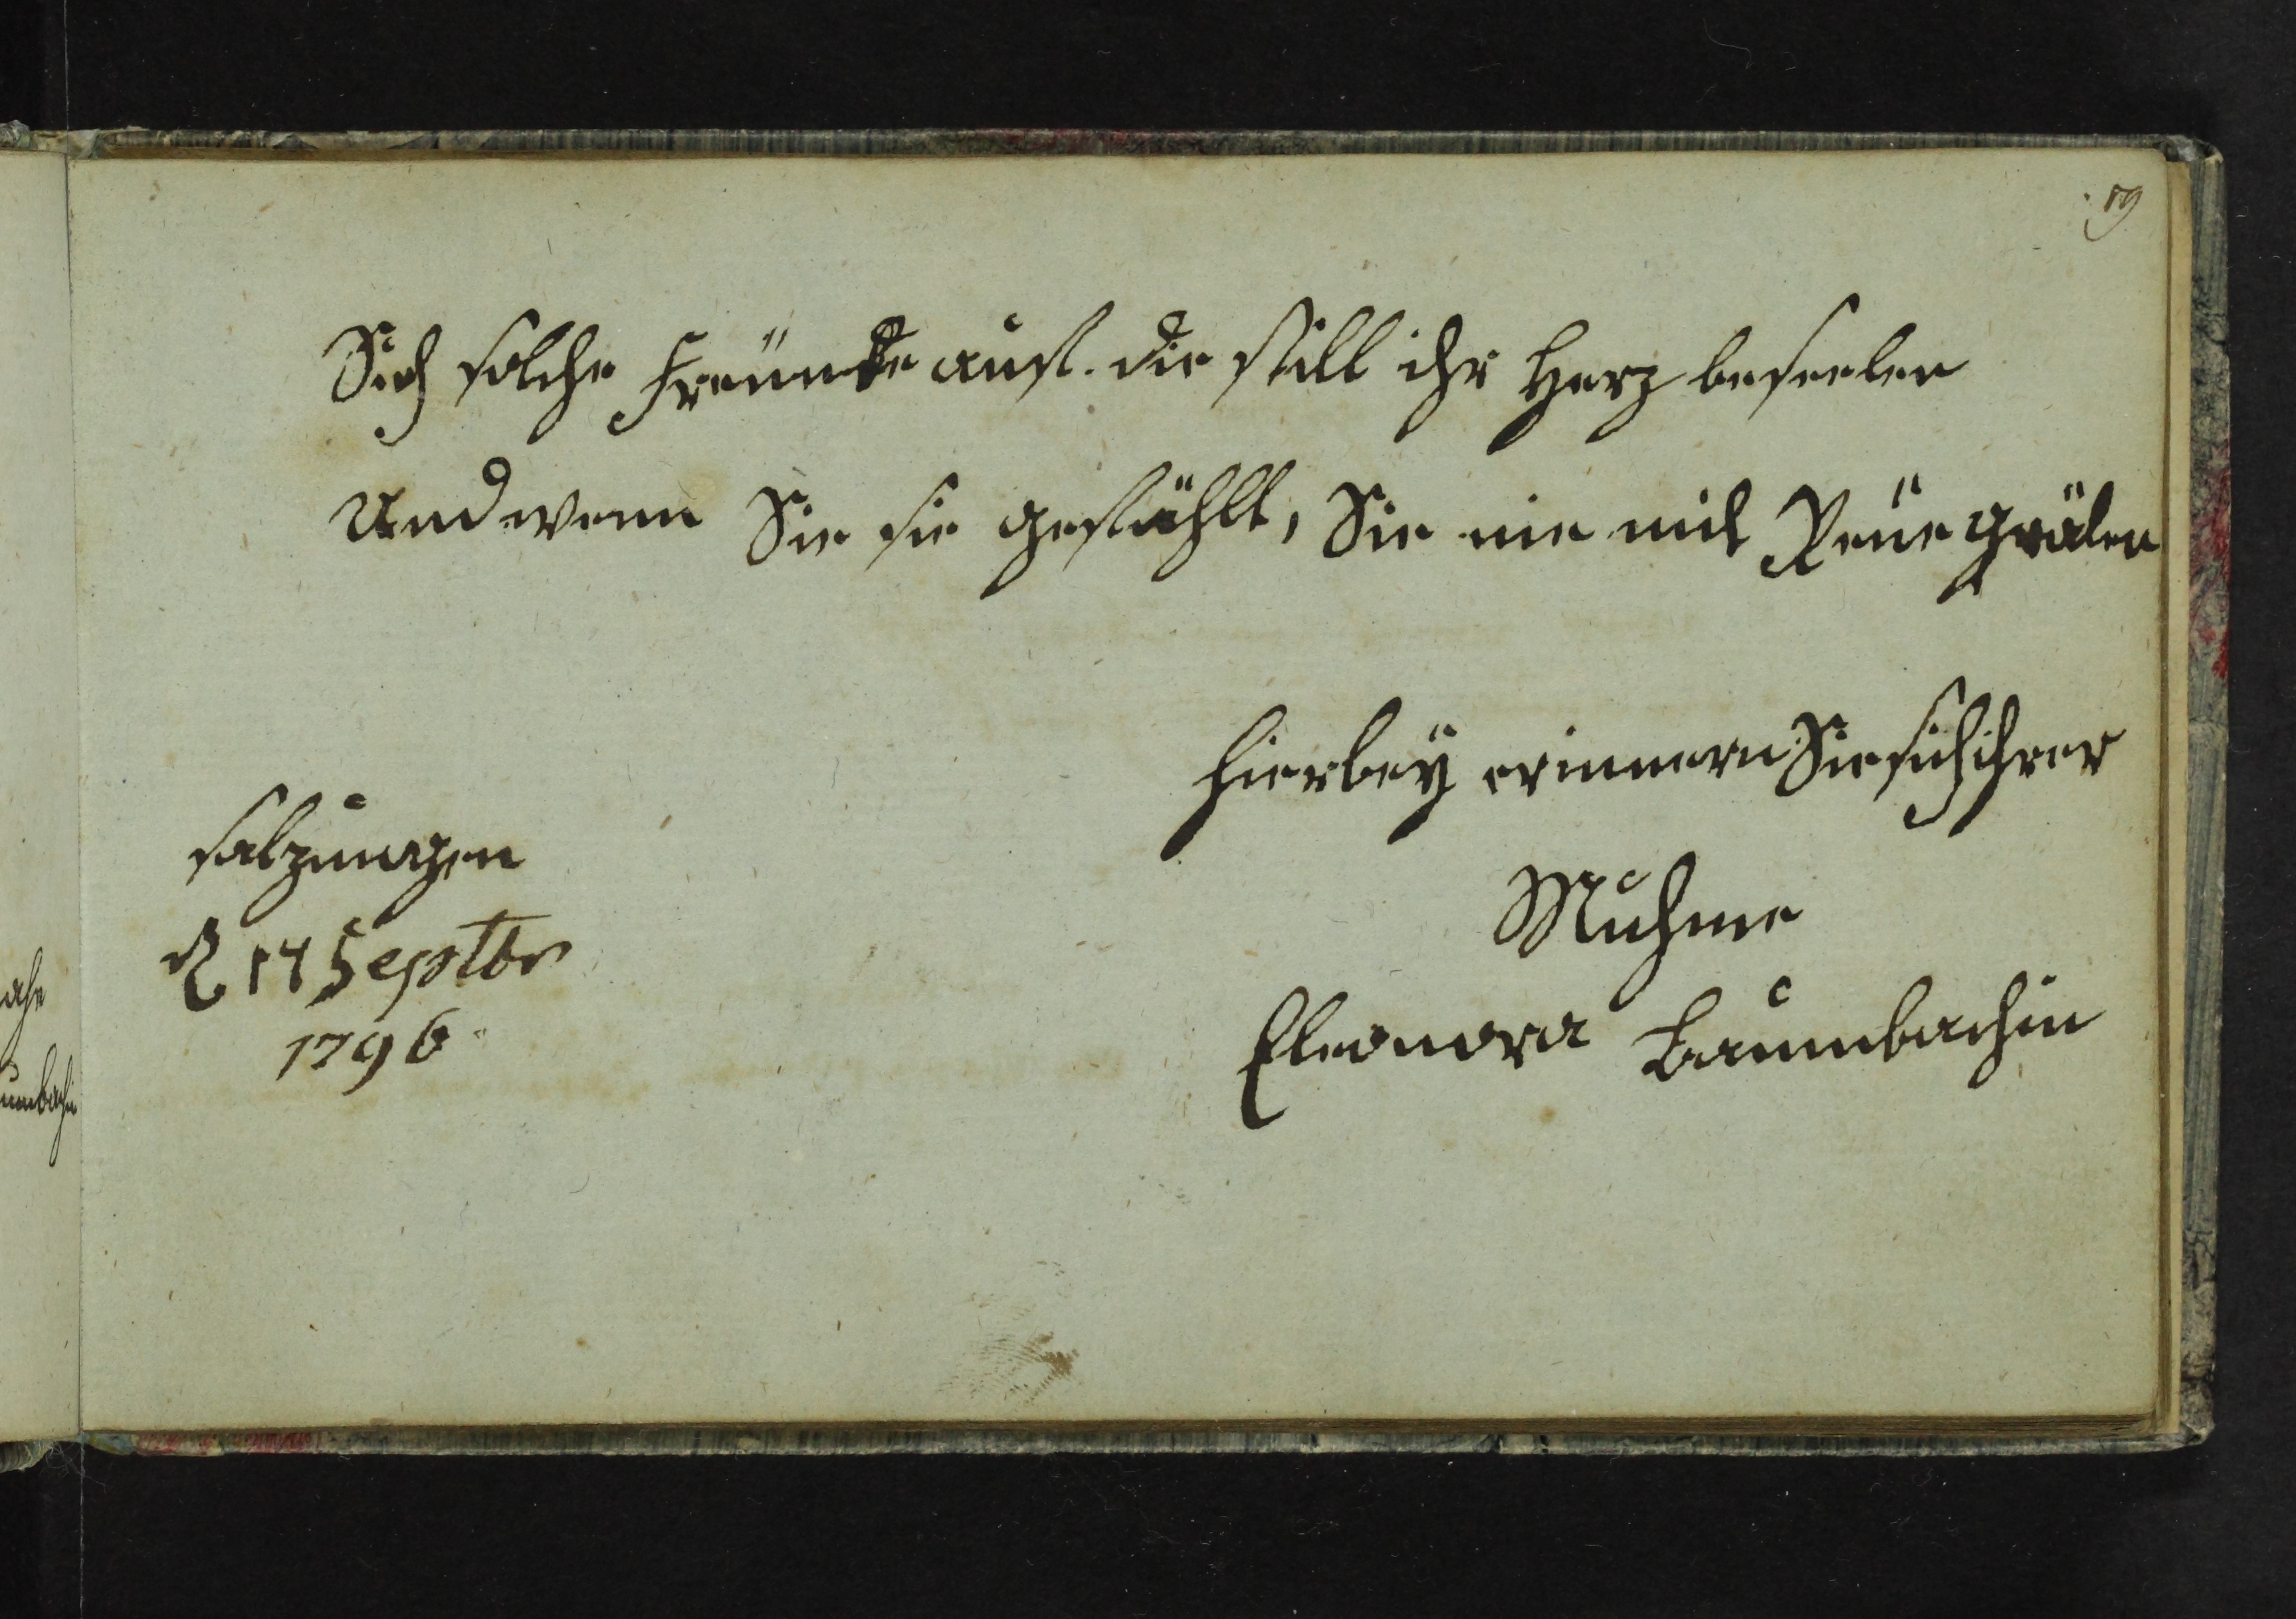 59
Sich solche Freunde aus. die still ihr Herz beseelen
Und wenn Sie sie gefühlt, Sie nie mit Reüe quälen
hierbeÿ erinnern Sie sich ihrer
Muhme
Eleonora Baumbachin
salzungen
d 14 Septbr
1796